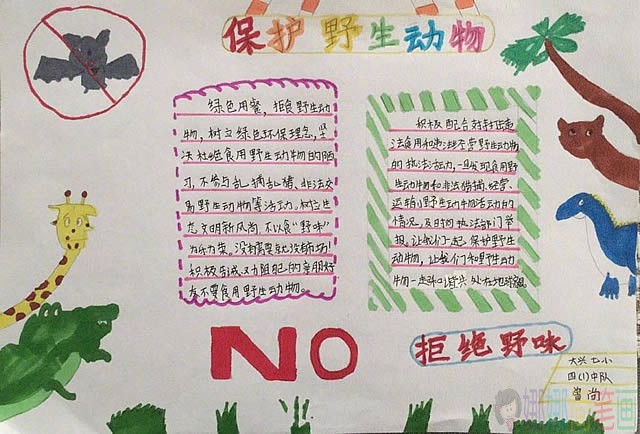 保护野生动物
绿色用餐，拒食野生动
物，树立绿色环保理念，坚
决杜绝食用野生动物的陋
习，不参与乱捕乱猎、非法交
易野生动物等活动。树立生
态文明新风尚，不以食“野味”
为乐为荣。没有需要就没有杀害！
积极告诫、劝阻自己的亲朋好
友不要食用野生动物。
积极配合
法食用和
的执法活动，一旦发现食用野
生动物和非法猎捕、经营、
运输野生动物活动的
情况，及时向执法部门举
报。让我们一起保护野生
动物，让我们和野生动
物一起
NO
拒绝野味
大兴七小
四(1)中队
尚
娜娜
笔画